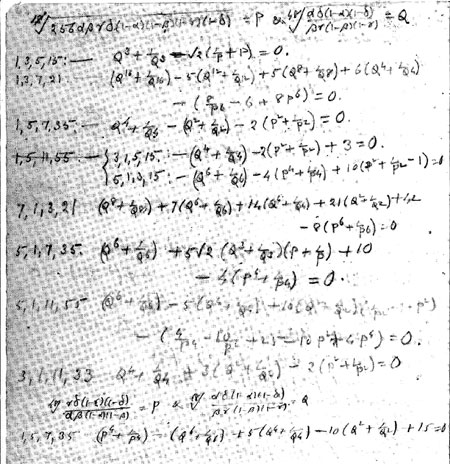 ⁴⁸√256αβγδ(1-α)(1-β)(1-γ)(1-δ) = P & ⁴⁸√αδ(1-α)(1-δ)/βγ(1-β)(1-γ) = Q
1,3,5,15:— Q³ + 1/Q³ = √2(P + 1/P) = 0.
1,3,7,21:— (Q¹⁶ + 1/Q¹⁶) - 5(Q¹² + 1/Q¹²) + 5(Q⁸ + 1/Q⁸) + 6(Q⁴ + 1/Q⁴)
- 6 + 8P⁶) = 0.
1,5,7,35:— Q⁴ + 1/Q⁴ - (Q² + 1/Q²) - 2(P² + 1/P²) = 0.
1,5,11,55:— { 3,1,5,15:— (Q⁴ + 1/Q⁴) - 2(P² + 1/P²) + 3 = 0.
5,1,3,15:— (Q⁶ + 1/Q⁶) - 4(P⁴ + 1/P⁴) + 10(P² + 1/P² - 1) = 0
7,1,3,21 (Q⁸ + 1/Q⁸) + 7(Q⁶ + 1/Q⁶) + 14(Q⁴ + 1/Q⁴) + 21(Q² + 1/Q²) + 42
- 8(P⁶ + 1/P⁶) = 0
5,1,7,35. (Q⁶ + 1/Q⁶) + 5√2(Q³ + 1/Q³)(P + 1/P) + 10
- 4(P⁴ + 1/P⁴) = 0.
5,1,11,55 (Q⁶ + 1/Q⁶) - 5(Q⁴
- 10P² + 4P⁴) = 0.
3,1,11,33 Q⁴ + 1/Q⁴ + 3(Q² + 1/Q²) - 2(P² + 1/P²) = 0
γδ(1-γ)(1-δ)/αβ(1-α)(1-β) = P & αδ(1-α)(1-δ)/βγ(1-β)(1-γ) = Q
1,5,7,35 (P⁴ + 1/P⁴) - (Q⁶ + 1/Q⁶) + 5(Q⁴ + 1/Q⁴) - 10(Q² + 1/Q²) + 15 = 0